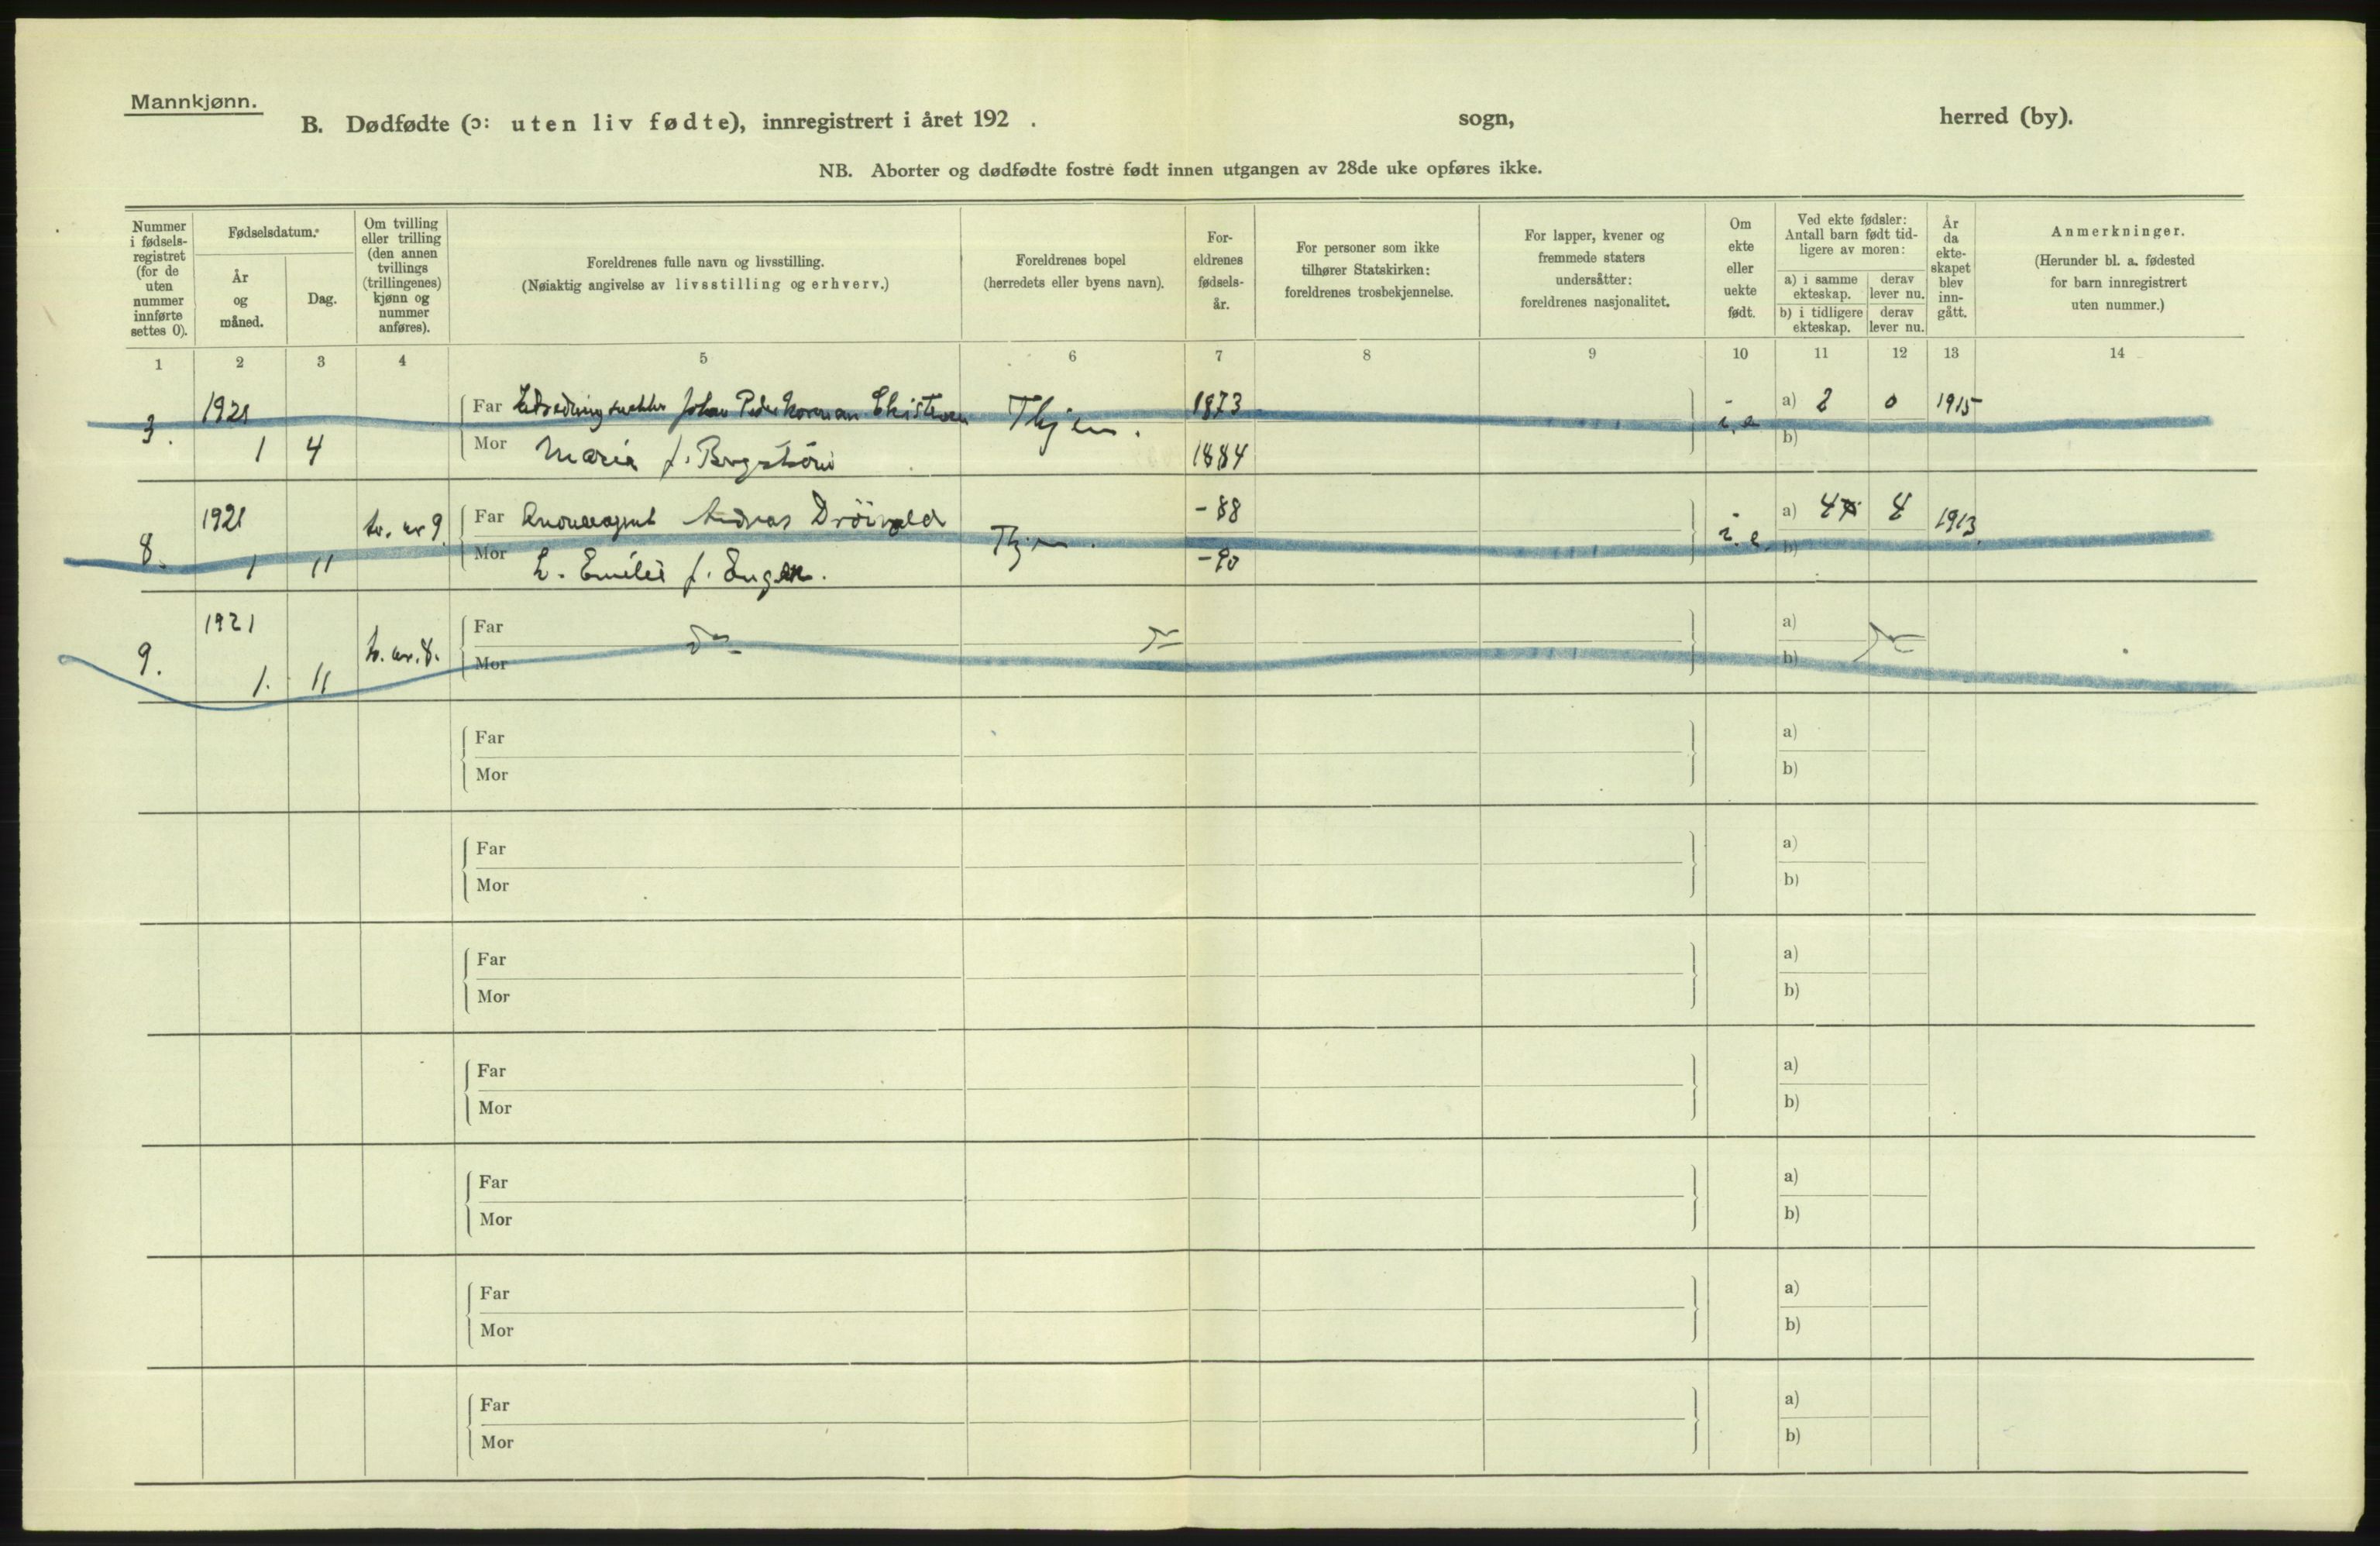 Mannkjønn.
B. Dødfødte (ɔ: uten liv fødte), innregistrert i året 192 . sogn, herred (by).
NB. Aborter og dødfødte fostre født innen utgangen av 28de uke opføres ikke.
Nummer i fødsels-registret (for de uten nummer innførte settes 0).
Fødselsdatum.
År og måned.
Dag.
Om tvilling eller trilling (den annen tvillings (trillingenes) kjønn og nummer anføres).
Foreldrenes fulle navn og livsstilling.
(Nøiaktig angivelse av livsstilling og erhverv.)
Foreldrenes bopel
(herredets eller byens navn).
For-eldrenes fødsels-år.
For personer som ikke
tilhører Statskirken:
foreldrenes trosbekjennelse.
For lapper, kvener og
fremmede staters
undersåtter:
foreldrenes nasjonalitet.
Om ekte eller uekte født.
Ved ekte fødsler:
Antall barn født tid-
ligere av moren:
a) i samme ekteskap.
derav lever nu.
b) i tidligere ekteskap.
derav lever nu.
År da ekte-skapet blev inn-gått.
Anmerkninger.
(Herunder bl. a. fødested
for barn innregistrert
uten nummer.)
1 2 3 4 5 6 7 8 9 10 11 12 13 14
3. 1921 Far Johan Peder 1873 a) 2 0 1915
1 4 Mor Marie f. Bergström 1884 i. e b)
8. 1921 tv. nr 9. Far Andreas -88 a) 4 4 1913
1 11 Mor E. Emilie f. Engen. -90 i. e. b)
9. 1921 tv. nr. 8. Far a)
1. 11 Mor b)
Far a)
Mor b)
Far a)
Mor b)
Far a)
Mor b)
Far a)
Mor b)
Far a)
Mor b)
Far a)
Mor b)
Far a)
Mor b)